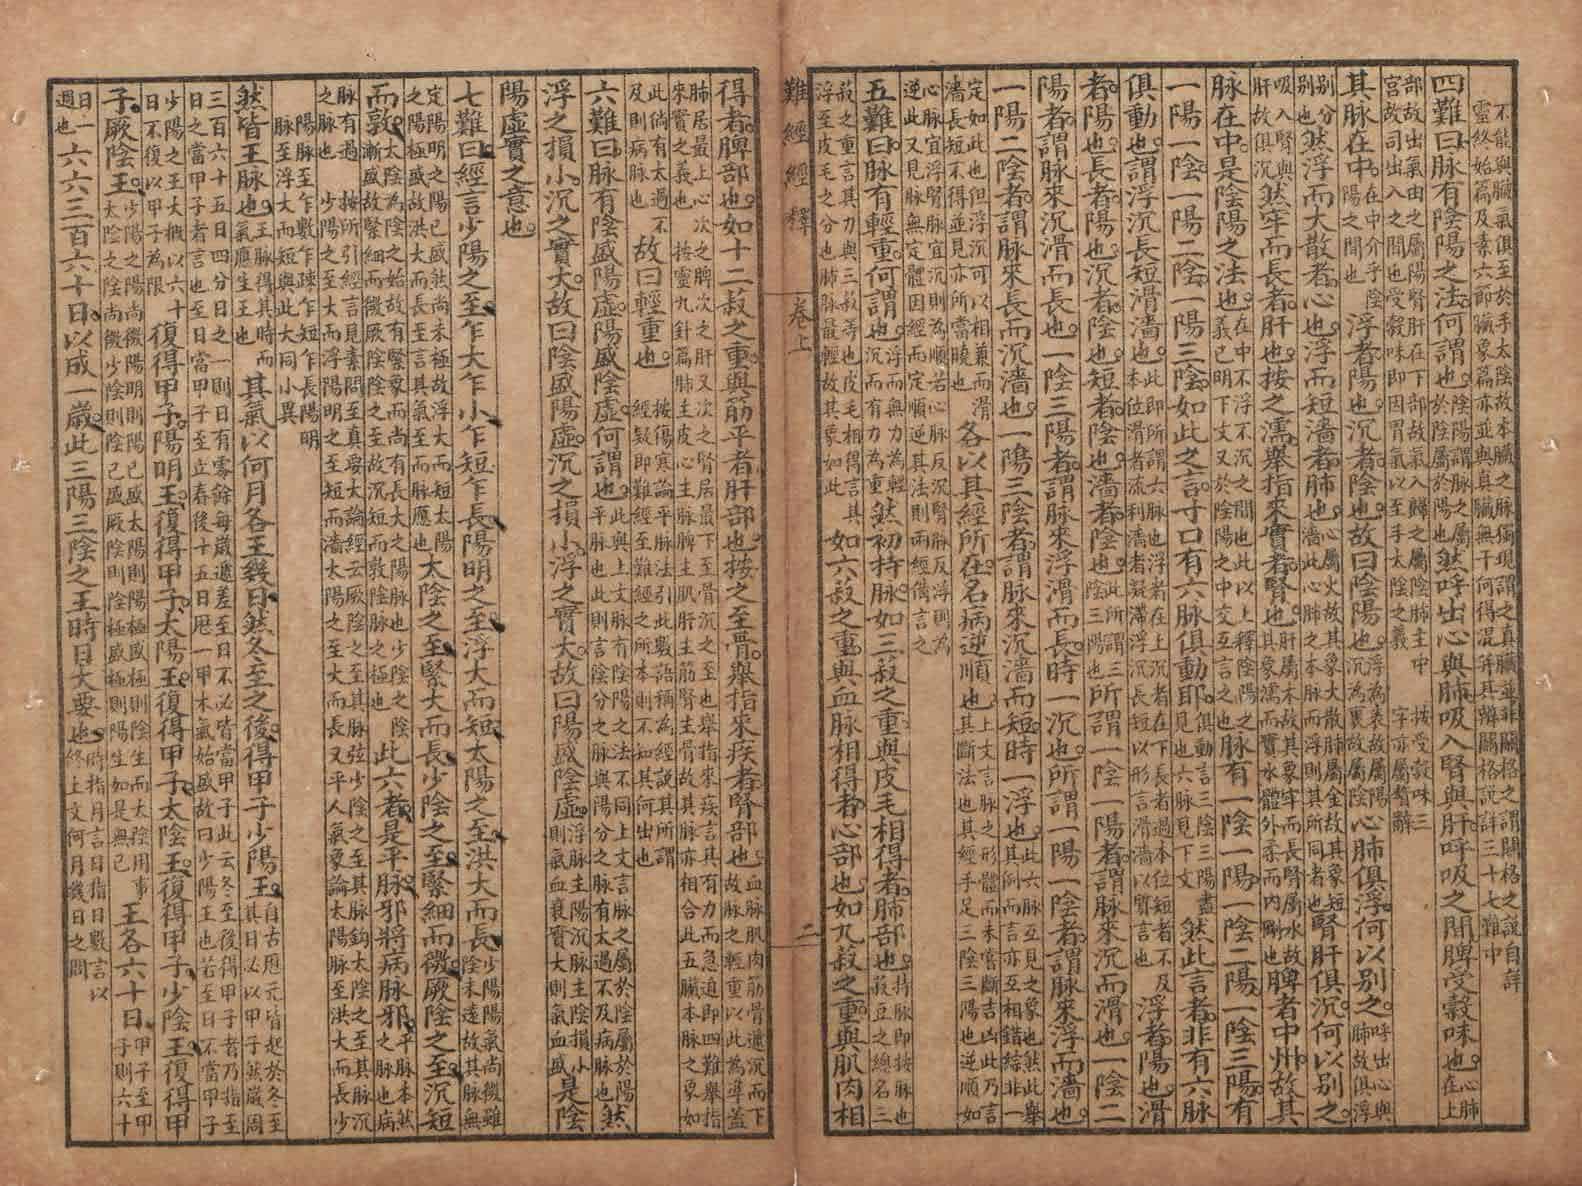 不能與臟氣俱至於手太陰故本臟之脉獨現謂之真臟並非關格之謂關格之說自詳
靈終始篇及素六節臟象篇亦並與真臟無干何得混并其辯關格說詳三十七難中
四難曰脉有陰陽之法何謂也陰陽謂脉之屬於陰屬於陽也然呼出心與肺吸入腎與肝呼吸之間脾受穀味也心肺在上
部故出氣由之屬陽腎肝在下部故氣入歸之屬陰肺主中宮故司出入之也受穀味即因胃氣以至手太陰之義 按受穀味三字亦屬贅辭
其脉在中在中介乎陰陽之間也浮者陽也沉者陰也故曰陰陽也浮為表故屬陽沉為裏故屬陰心肺俱浮何以別之呼出心與肺故俱浮
別分別也然浮而大散者心也浮而短濇者肺也心屬火故其象大散肺屬金故其象短濇此心肺之本脉而浮則其所同者也腎肝俱沉何以別之
吸入腎與肝故俱沉然牢而長者肝也按之濡舉指來實者腎也肝屬木故其象牢而長腎屬水故其象濡而實水體外柔而內剛也脾者中州故其
脉在中是陰陽之法也在中不浮不沉之間也此以上釋陰陽之義已明下文又於陰陽之中交互言之也脉有一陰一陽一陰二陽一陰三陽有
一陽一陰一陽二陰一陽三陰如此之言寸口有六脉俱動耶俱動言三陰三陽盡見也六脉見下文然此言者非有六脉
俱動也謂浮沉長短滑濇也此即所謂六脉也浮者在上沉者在下長者過本位短者不及本位滑者流利濇者凝滯浮沉長短以形言滑濇以質言也浮者陽也滑
者陽也長者陽也沉者陰也短者陰也濇者陰也此所謂三陰三陽也所謂一陰一陽者謂脉來沉而滑也一陰二
陽者謂脉來沉滑而長也一陰三陽者謂脉來浮滑而長時一沉也所謂一陽一陰者謂脉來浮而濇也
一陽二陰者謂脉來長而沉濇也一陽三陰者謂脉來沉濇而短時一浮也此六脉互見之象也然此舉其例而言亦互相錯綜非一
定如此也但浮沉可以相兼而滑濇長短不得並見亦所當曉也各以其經所在名病逆順也上文言脉之形體而未嘗斷吉凶此乃言其斷法也其經手足三陰三陽也逆順如
心脉宜浮腎脉宜沉則為順若心脉反沉腎脉反浮則為逆此又見脉無定體因經而定順逆其法則兩經備言之
五難曰脉有輕重何謂也浮而無力為輕沉而有力為重然初持脉如三菽之重與皮毛相得者肺部也持脉即按脉也菽豆之總名三
菽之重言其力與三菽等也皮毛相得言其浮至皮毛之分也肺脉最輕故其象如此如六菽之重與血脉相得者心部也如九菽之重與肌肉相
難經經釋 卷上 二
得者脾部也如十二菽之重與筋平者肝部也按之至骨舉指來疾者腎部也血脉肌肉筋骨遞沉而下故脉之輕重以此為準蓋
肺居最上心次之脾次之肝又次之腎居最下至骨沉之至也舉指來疾言其有力而急迫即四難舉指來實之義也 按靈九針篇肺主皮心主脉脾主肌肝主筋腎主骨故其脉亦相合此五臟本脉之象如
此倘有太過不及則病脉也故曰輕重也按傷寒論平脉法引此數語稱為經說其所謂經疑即難經至難經之所本則不知其何出也
六難曰脉有陰盛陽虛陽盛陰虛何謂也此與上文脉有陰陽之法不同上文言脉之屬於陰屬於陽平脉也此則言陰分之脉與陽分之脉有太過不及病脉也然
浮之損小沉之實大故曰陰盛陽虛沉之損小浮之實大故曰陽盛陰虛浮脉主陽沉脉主陰損小則氣血衰實大則氣血盛是陰
陽虛實之意也
七難曰經言少陽之至乍大乍小乍短乍長陽明之至浮大而短太陽之至洪大而長少陽陽氣尚微雖陰未遠故其脉無
定陽明之陽已盛然尚未極故浮大而短太陽之陽極盛故洪大而長至言其氣至而脉應也太陰之至緊大而長少陰之至緊細而微厥陰之至沉短
而敦太陰為陰之始故有緊象而尚有長大之陽脉也少陰之陰漸盛故緊細而微厥陰陰之至故沉短而敦陰脉之極也此六者是平脉邪將病脉邪平脉本然之脉也病
脉有過之脉也 按所引經言見素問至真要大論經云厥陰之至其脉弦少陰之至其脉鈎太陰之至其脉沉少陽之至大而浮陽明之至短而濇太陽之至大而長又平人氣象論太陽脉至洪大而長少
陽脉至乍數乍疎乍短乍長陽明脉至浮大而短與此大同小異
然皆王脉也王脉得其時而氣應生王也其氣以何月各王幾日然冬至之後得甲子少陽王自古厯元皆起於冬至其日以甲子然歲周
三百六十五日四分日之一則日有零餘每歲遞差至日不必皆當甲子此云冬至後得甲子者乃指至日之當甲子者言也至日當甲子至立春後十五日厯一甲木氣始盛故曰少陽王也若至日不當甲子
少陽之王大槪以六十日不復以甲子為限復得甲子陽明王復得甲子太陽王復得甲子太陰王復得甲子少陰王復得甲
子厥陰王少陽之陽尚微陽明則陽已盛太陽則陽極盛極則陰生而太陰用事太陰之陰尚微少陰則陰已盛厥陰則陰極盛極則陽生如是無已王各六十日甲子至甲子則六十
日一週也六六三百六十日以成一歲此三陽三陰之王時日大要也時指月言日指日數言以終上文何月幾日之問